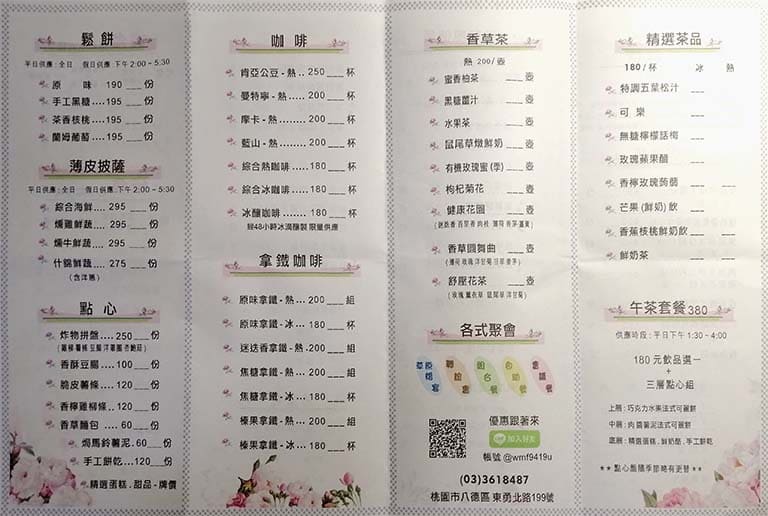 鬆餅
平日供應:全日 假日供應:下午2:00~5:30
原 味 190 ___份
手工黑糖....195 ___份
茶香核桃....195 ___份
蘭姆葡萄....195 ___份
薄皮披薩
平日供應:全日 假日供應:下午2:00~5:30
綜合海鮮....295 ___份
燻雞鮮蔬....295 ___份
燻牛鮮蔬....295 ___份
什錦鮮蔬....275 ___份
(含洋蔥)
點心
炸物拼盤.....250___份
香酥豆腸.....100___份
脆皮薯條.....120___份
香檸雞柳條..120___份
香草麵包.....60___份
焗馬鈴薯泥.60___份
手工餅乾....120___份
精選蛋糕.甜品-牌價
咖啡
肯亞公豆-熱..250___杯
曼特寧-熱.....200___杯
摩卡-熱........200___杯
藍山-熱........200___杯
綜合熱咖啡.....180___杯
綜合冰咖啡.....180___杯
冰釀咖啡.......180___杯
經48小時冰滴釀製 限量供應
拿鐵咖啡
原味拿鐵-熱...200___組
原味拿鐵-冰...180___杯
迷迭香拿鐵-熱.200___組
焦糖拿鐵-熱...200___組
焦糖拿鐵-冰...180___杯
榛果拿鐵-熱...200___組
榛果拿鐵-冰...180___杯
香草茶
熱 200/壺
蜜香柚茶 ___壺
黑糖薑汁 ___壺
水果茶 ___壺
鼠尾草燉鮮奶 ___壺
有機玫瑰蜜(季) ___壺
枸杞菊花 ___壺
健康花園 ___壺
香草圓舞曲 ___壺
舒壓花茶 ___壺
各式聚會
優惠跟著來
加入好友
帳號 @wmf9419u
(03)3618487
桃園市八德區 東勇北路199號
精選茶品
180/杯 冰 熱
特調五葉松汁 ___
可樂 ___
無糖檸檬話梅 ___
玫瑰蘋果醋 ___
香檸玫瑰蒟蒻 ___ ___
芒果(鮮奶)飲 ___
香蕉核桃鮮奶飲___ ___
鮮奶茶 ___ ___
午茶套餐380
供應時段:平日下午1:30~4:00
180元飲品選一
+
三層點心組
上層:巧克力水果法式可麗餅
中層:肉醬薯泥法式可麗餅
底層:精選蛋糕,鮮奶酪,手工餅乾
**點心酌隨季節略有更替**